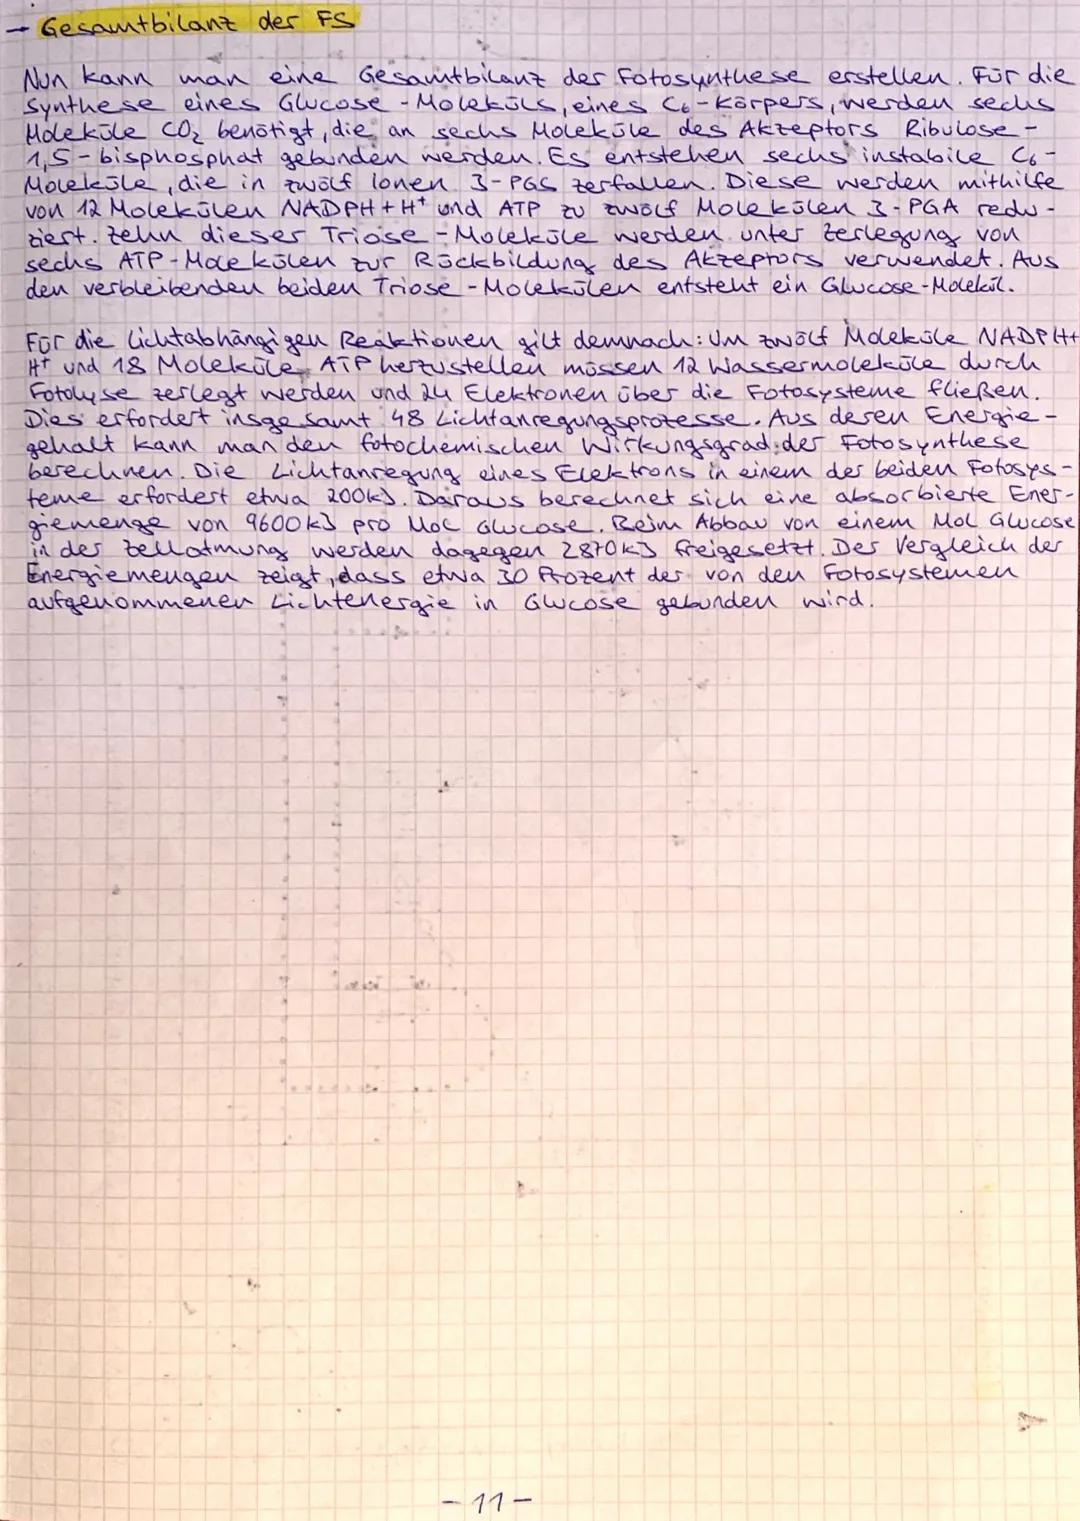 → Gesamtbilanz der FS
Nun kann man eine Gesamtbilanz der Fotosynthese erstellen. Für die
Synthese eines Glucose-Moleküls, eines C₆-Körpers, werden sechs
Moleküle CO₂ benötigt, die an sechs Moleküle des Akzeptors Ribulose-
1,5-bisphosphat gebunden werden. Es entstehen sechs instabile C₆-
Moleküle, die in zwölf Ionen 3-PGS zerfallen. Diese werden mithilfe
von 12 Molekülen NADPH+H⁺ und ATP zu zwölf Molekülen 3-PGA redu-
ziert. Zehn dieser Triose-Moleküle werden unter Zerlegung von
sechs ATP-Molekülen zur Rückbildung des Akzeptors verwendet. Aus
den verbleibenden beiden Triose-Molekülen entsteht ein Glucose-Molekül.
Für die Lichtabhängigen Reaktionen gilt demnach: Um zwölf Moleküle NADPH+
H⁺ und 18 Moleküle ATP herzustellen müssen 12 Wassermoleküle durch
Fotolyse zerlegt werden und 24 Elektronen über die Fotosysteme fließen.
Dies erfordert insgesamt 48 Lichtanregungsprozesse. Aus deren Energie-
gehalt kann man den fotochemischen Wirkungsgrad der Fotosynthese
berechnen. Die Lichtanregung eines Elektrons in einem der beiden Fotosys-
teme erfordert etwa 200kJ. Daraus berechnet sich eine absorbierte Ener-
giemenge von 9600kJ pro Mol Glucose. Beim Abbau von einem Mol Glucose
in der Zellatmung werden dagegen 2870kJ freigesetzt. Der Vergleich der
Energiemengen zeigt, dass etwa 30 Prozent der von den Fotosystemen
aufgenommenen Lichtenergie in Glucose gebunden wird.
- 11 -